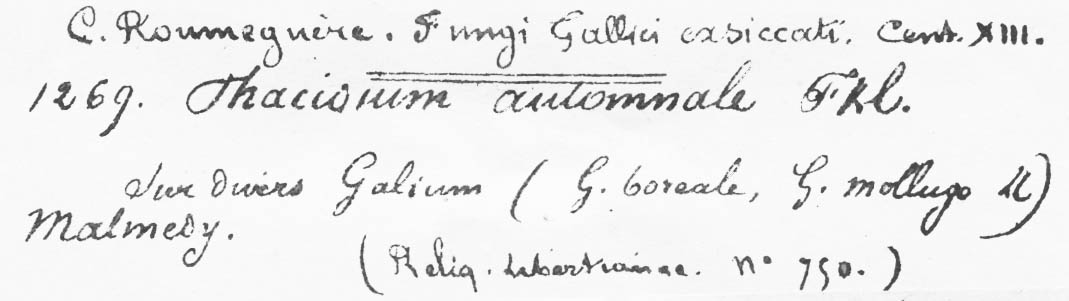 C. Roumeguère. Fungi Gallici exsiccati. Cent. XIII.
1269. Phacidium automnale Fkl.
Sur divers Galium ( G. boreale, G. mollugo &)
Malmedy.
(Reliq. Libertianae. n° 750.)